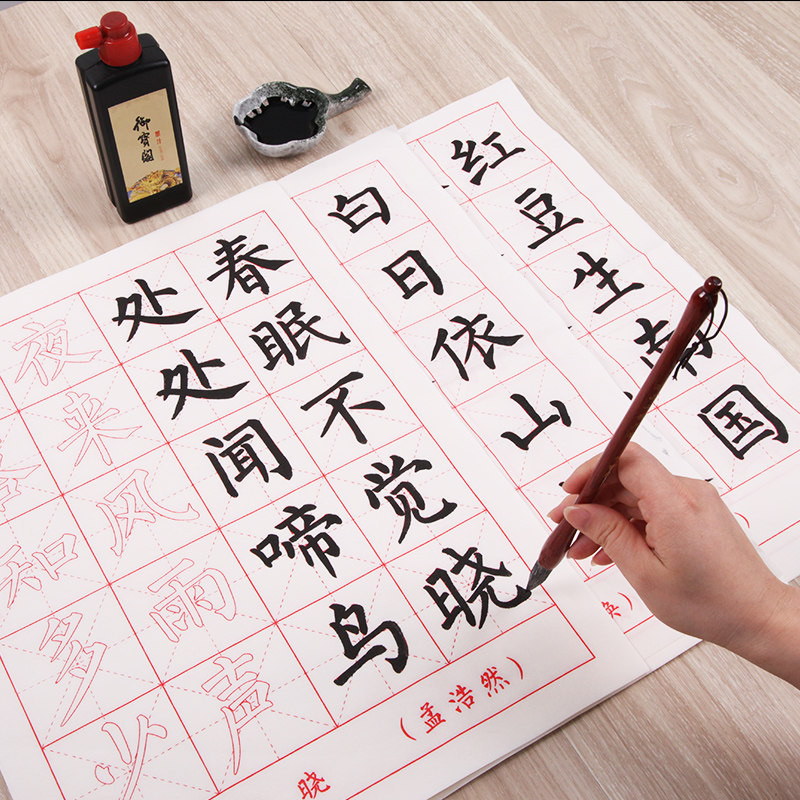 御寶閣
红豆生南国
白日依山
春眠不觉晓
处处闻啼鸟
夜来风雨声
知多少
晓
(孟浩然)